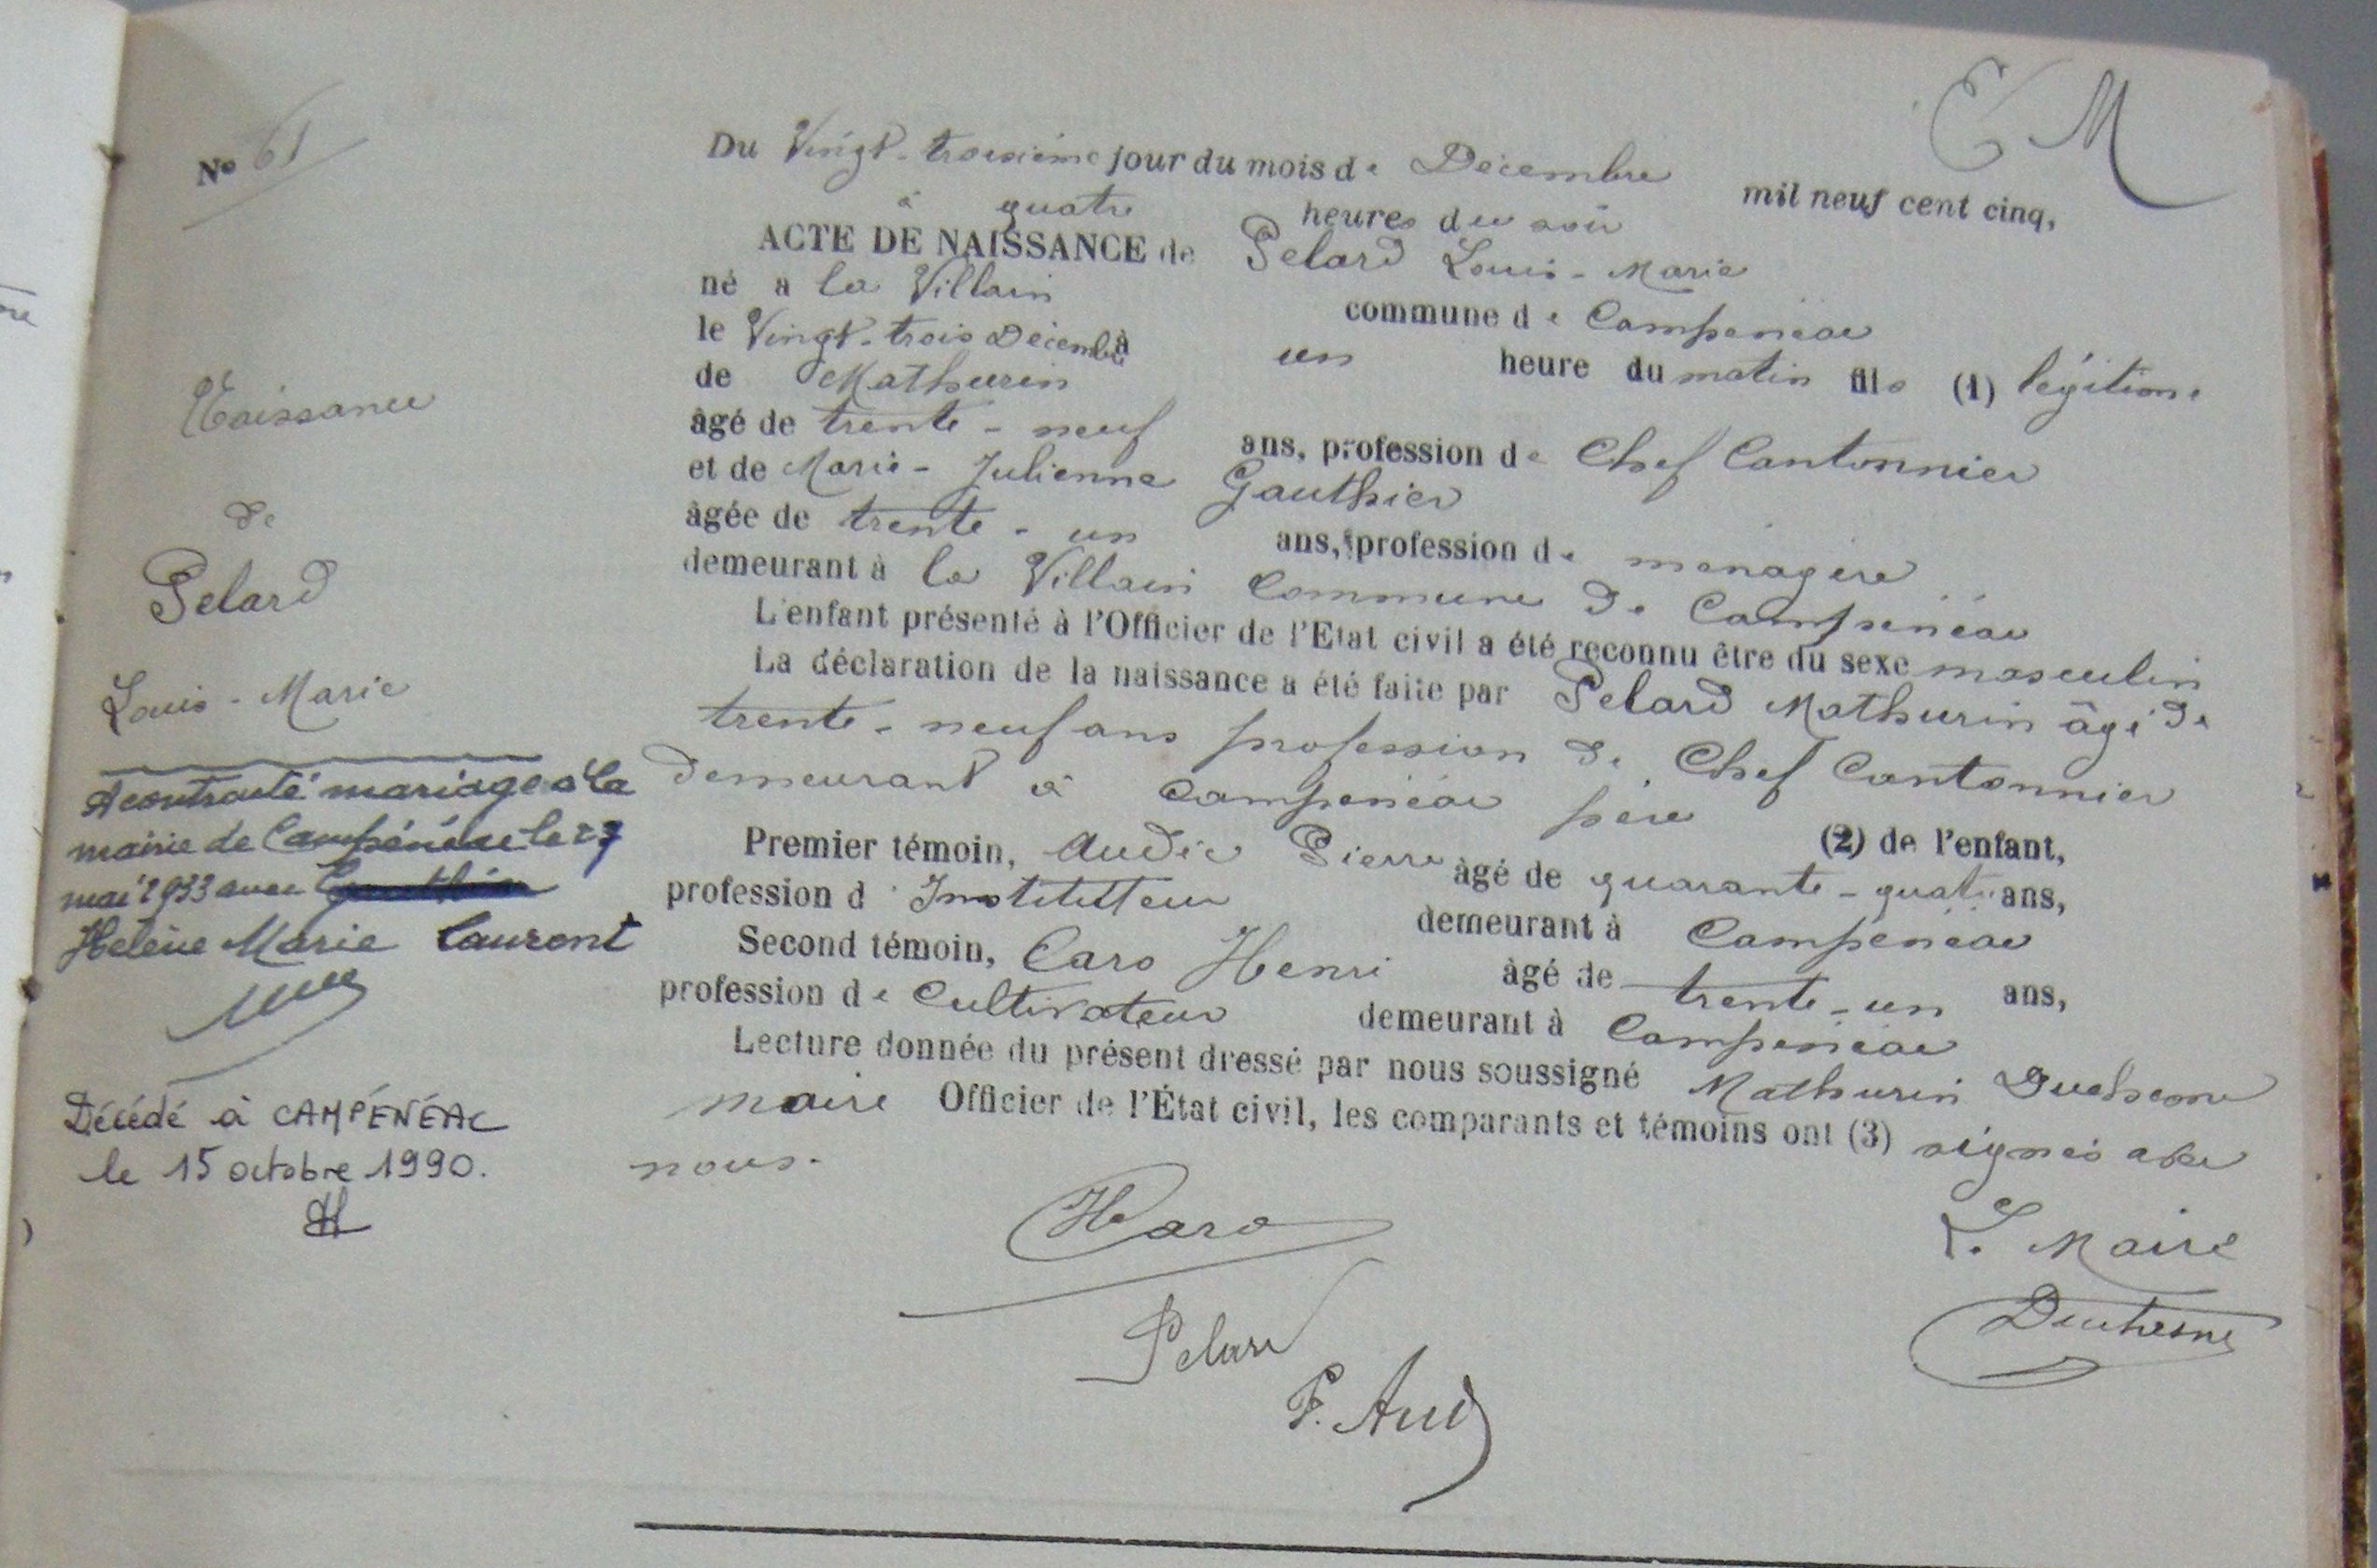 E M
Nº 61
Du Vingt-troisième jour du mois de Décembre mil neuf cent cinq,
à quatre heures du soir
ACTE DE NAISSANCE de Pelard Louis-Marie
né a la Villain commune de Campénéac
le Vingt-trois Décembre à un heure du matin fils (1) légitime
de Mathurin
âgé de trente-neuf ans, profession de Chef Cantonnier
et de Marie-Julienne Gauthier
âgée de trente-un ans, profession de ménagère
demeurant à la Villain Commune de Campénéac
L'enfant présenté à l'Officier de l'Etat civil a été reconnu être du sexe masculin
La déclaration de la naissance a été faite par Pelard Mathurin âgé de
trente-neuf ans profession de Chef Cantonnier
demeurant à Campénéac père (2) de l'enfant,
Premier témoin, Audic Pierre âgé de quarante-quatre ans,
profession d'Instituteur demeurant à Campénéac
Second témoin, Caro Henri âgé de trente-un ans,
profession de Cultivateur demeurant à Campénéac
Lecture donnée du présent dressé par nous soussigné Mathurin Duchesne
maire Officier de l'État civil, les comparants et témoins ont (3) signés avec
nous.
HCaro
Pelard
P. Audic
L. Maire
Duchesne
Naissance
de
Pelard
Louis-Marie
A contracté mariage à la
mairie de Campénéac le 27
mai 1933 avec
Helène Marie Laurent
Décédé à CAMPÉNÉAC
le 15 octobre 1990.